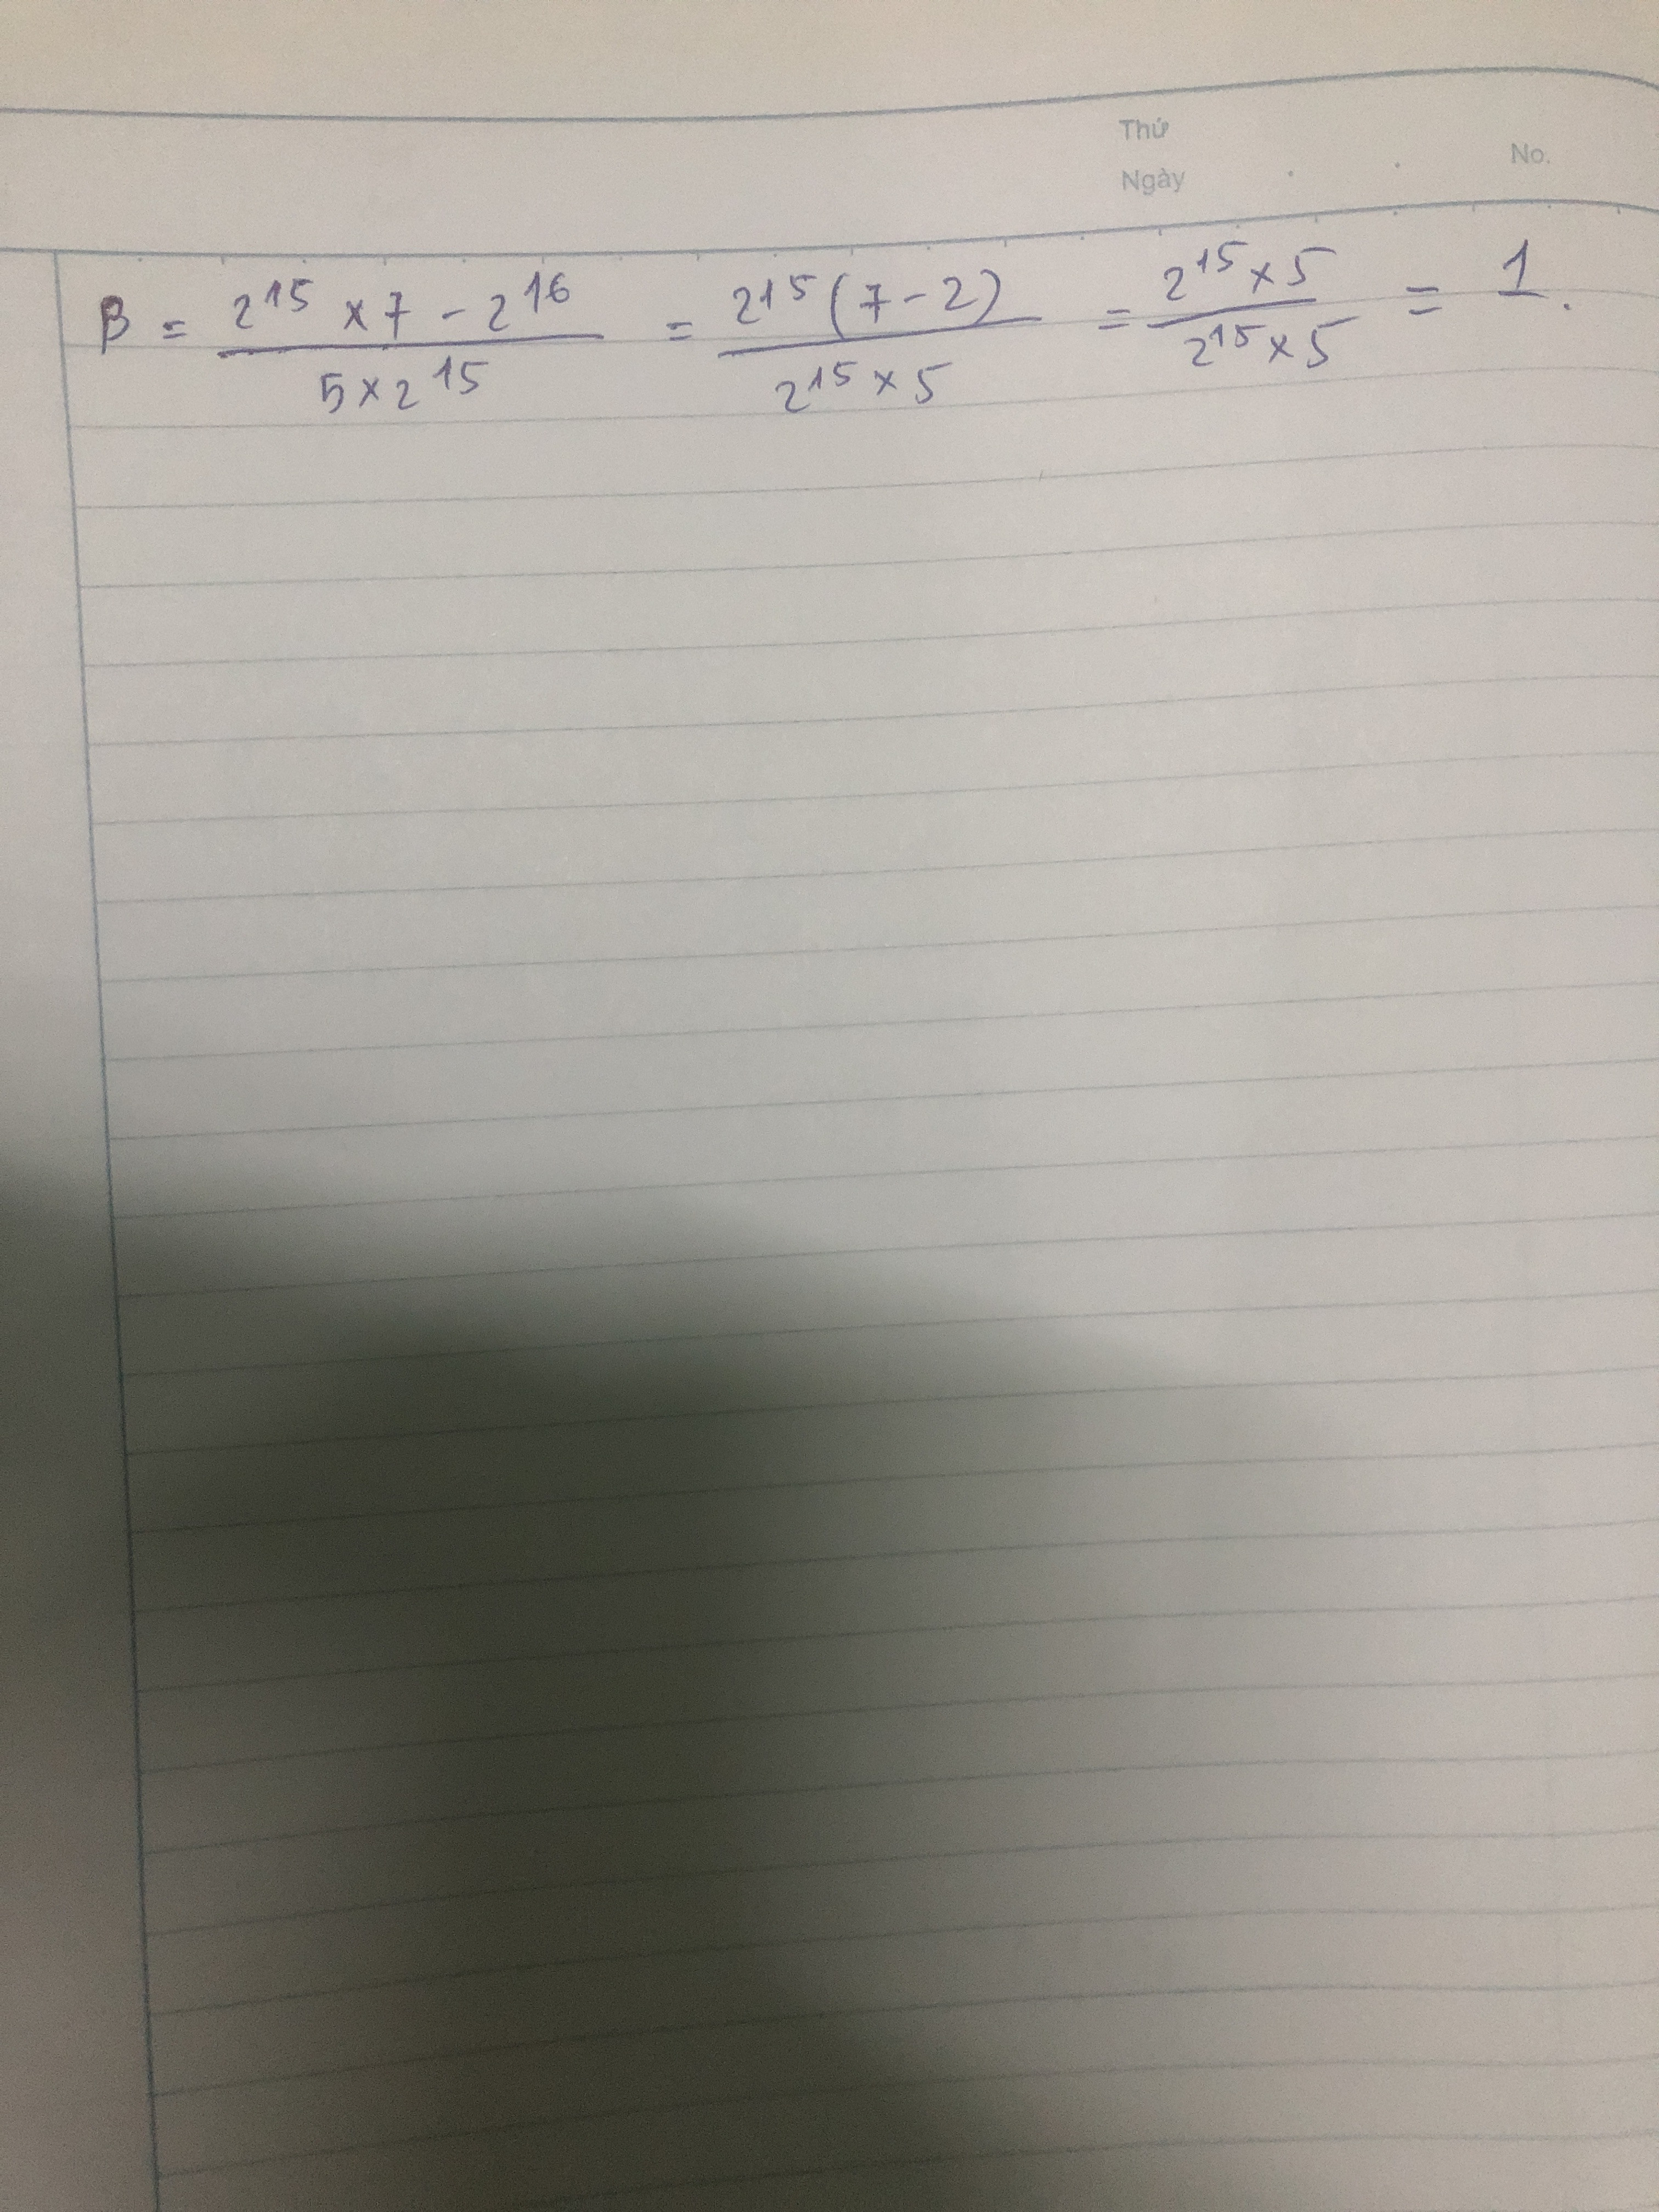 Thứ
Ngày
No.
B = \frac{2^{15} \times 7 - 2^{16}}{5 \times 2^{15}} = \frac{2^{15} (7 - 2)}{2^{15} \times 5} = \frac{2^{15} \times 5}{2^{15} \times 5} = 1.